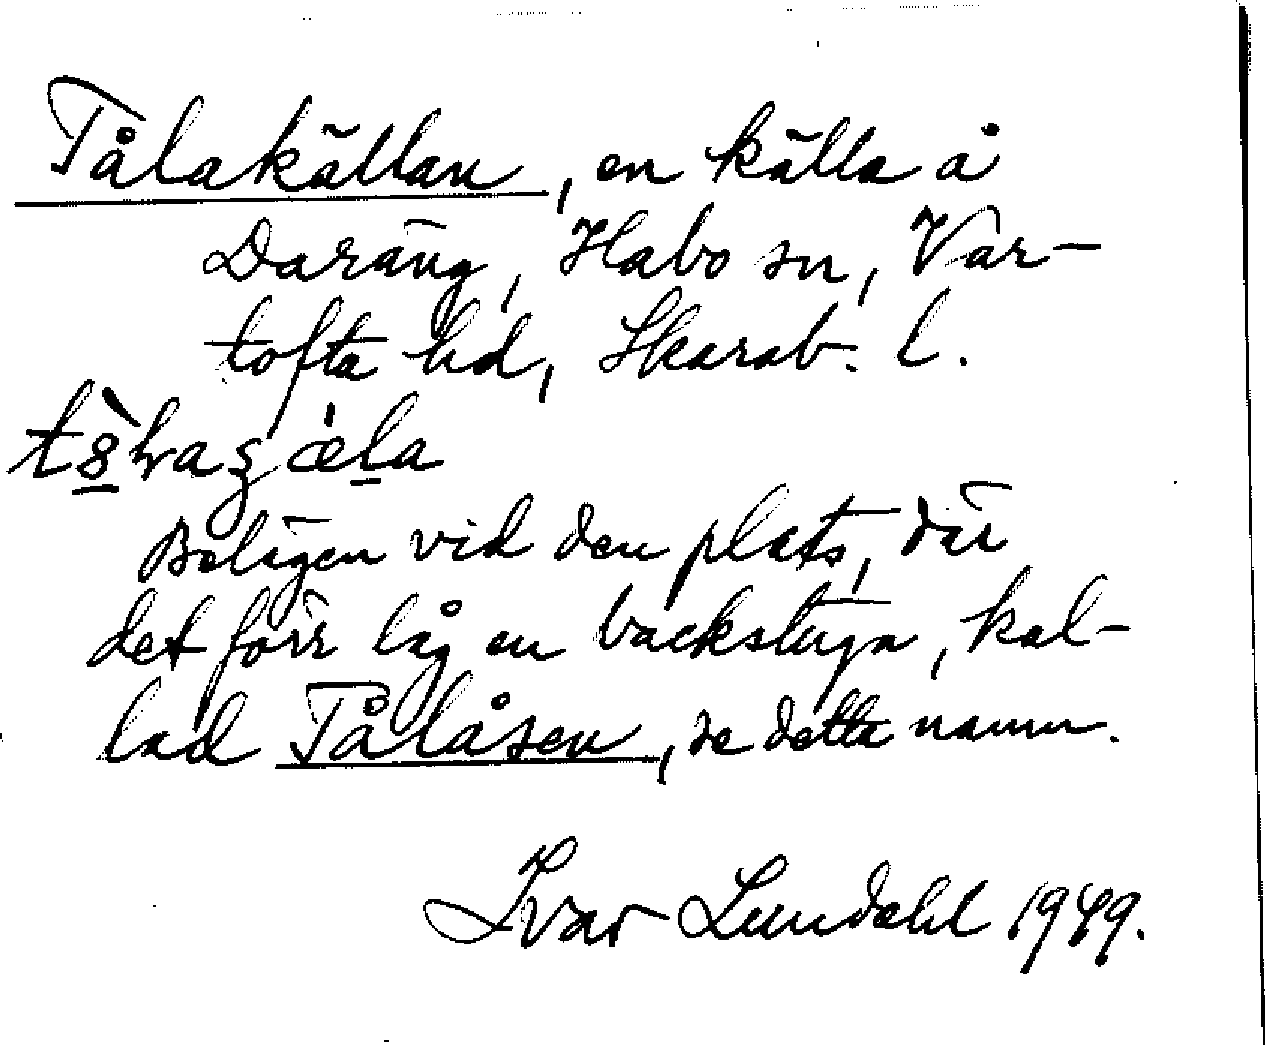 Tålakällan, en källa å
Daräng, Habo sn, Var-
tofta hd, Skarab. l.
Belägen vid den plats, där
det förr låg en backstuga, kal-
lad Tålåsen, se detta namn.
Ivar Lundahl 1949.